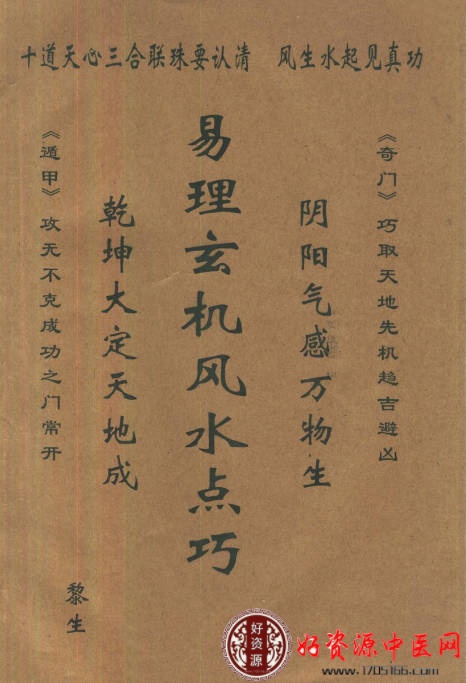 十道天心三合联珠要认清 风生水起见真功
《奇门》巧取天地先机趋吉避凶
阴阳气感万物生
易理玄机风水点巧
乾坤大定天地成
《遁甲》攻无不克成功之门常开
黎生
好资源
好资源中医网
www.1705166.com